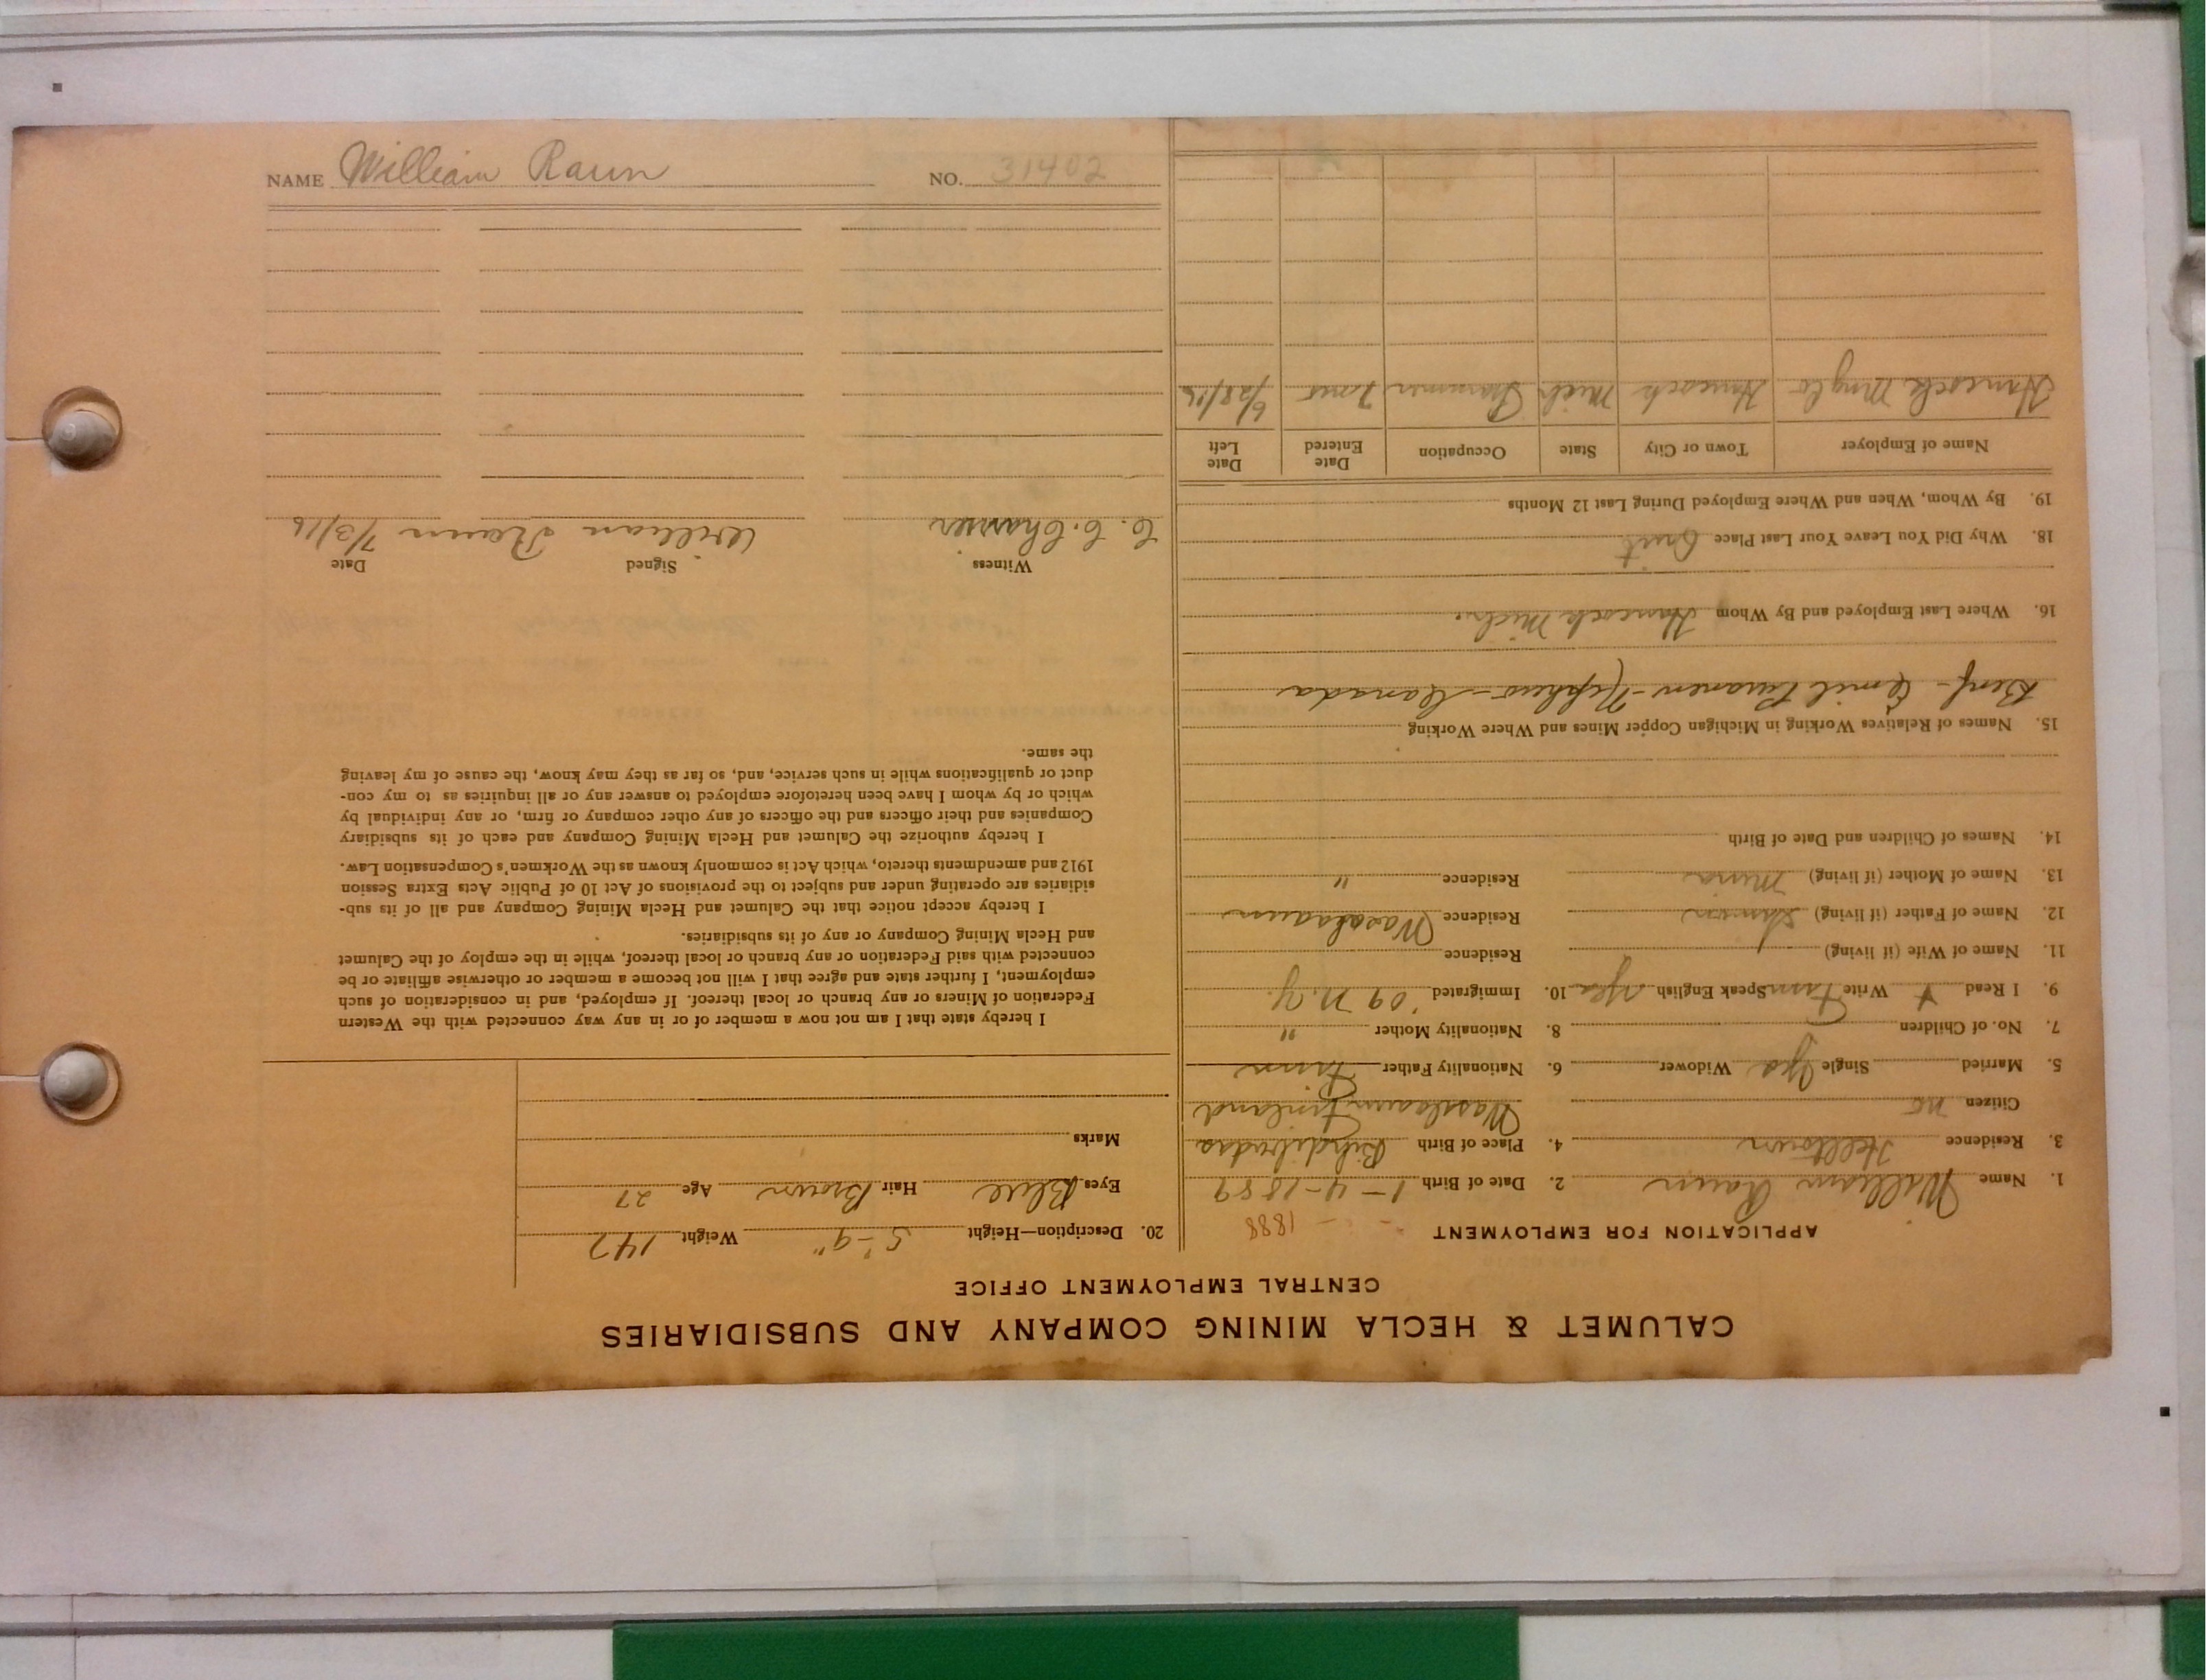 NAME William Raun NO. 31402
CALUMET & HECLA MINING COMPANY AND SUBSIDIARIES
CENTRAL EMPLOYMENT OFFICE
APPLICATION FOR EMPLOYMENT 1888
1. Name William Raun 2. Date of Birth 1-4-1889
3. Residence Helltown 4. Place of Birth
Citizen no Finland
5. Married Single Yes Widower 6. Nationality Father Finn
7. No. of Children 8. Nationality Mother "
9. I Read Write Finn Speak English Yes 10. Immigrated '09 N.Y.
11. Name of Wife (if living) Residence
12. Name of Father (if living) Residence
13. Name of Mother (if living) Residence "
14. Names of Children and Date of Birth
15. Names of Relatives Working in Michigan Copper Mines and Where Working
Benf- Emil - Nephew - Canada
16. Where Last Employed and By Whom Hancock Mich.
18. Why Did You Leave Your Last Place Quit
19. By Whom, When and Where Employed During Last 12 Months
Name of Employer Town or City State Occupation Date Entered Date Left
Hancock Mng Co Hancock Mich Trammer 6/28/16
20. Description—Height 5'-9" Weight 147
Eyes Blue Hair Brown Age 27
Marks
I hereby state that I am not now a member of or in any way connected with the Western
Federation of Miners or any branch or local thereof. If employed, and in consideration of such
employment, I further state and agree that I will not become a member or otherwise affiliate or be
connected with said Federation or any branch or local thereof, while in the employ of the Calumet
and Hecla Mining Company or any of its subsidiaries.
I hereby accept notice that the Calumet and Hecla Mining Company and all of its sub-
sidiaries are operating under and subject to the provisions of Act 10 of Public Acts Extra Session
1912 and amendments thereto, which Act is commonly known as the Workmen's Compensation Law.
I hereby authorize the Calumet and Hecla Mining Company and each of its subsidiary
Companies and their officers and the officers of any other company or firm, or any individual by
which or by whom I have been heretofore employed to answer any or all inquiries as to my con-
duct or qualifications while in such service, and, so far as they may know, the cause of my leaving
the same.
Witness Signed Date
William Raun 7/3/16